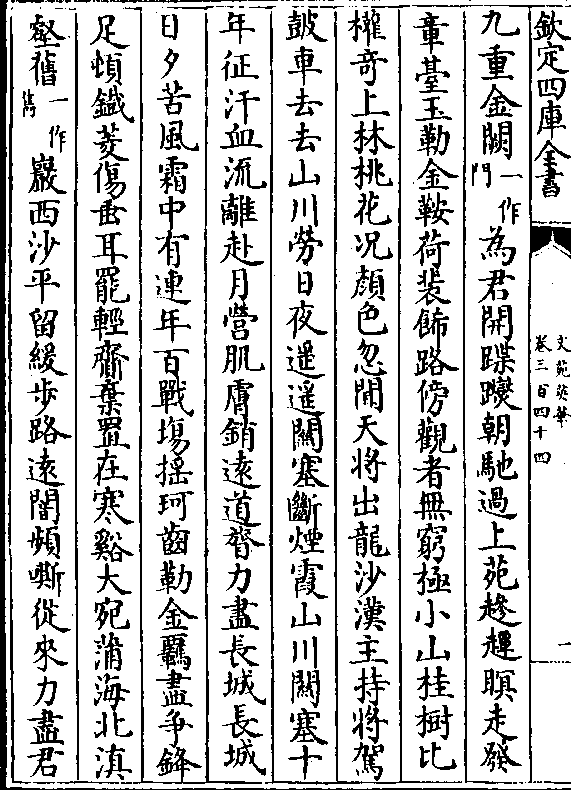 欽定四庫全書
文苑英華
卷三百四十四
一
九重金闕一作門為君開蹀躞朝馳過上苑趁趯瞑走發
章臺玉勒金鞍荷裝飾路傍觀者無窮極小山桂樹比
權奇上林桃花况顔色忽聞天將出龍沙漢主持將駕
鼓車去去山川勞日夜遥遥關塞斷煙霞山川關塞十
年征汗血流離赴月營肌膚銷遠道膂力盡長城長城
日夕苦風霜中有連年百戰塲揺珂齒勒金羈盡争鋒
足頓鐵菱傷垂耳罷輕齎棄置在寒谿大宛蒲海北滇
壑舊一作雋巖西沙平留緩歩路遠闇頻嘶從來力盡君